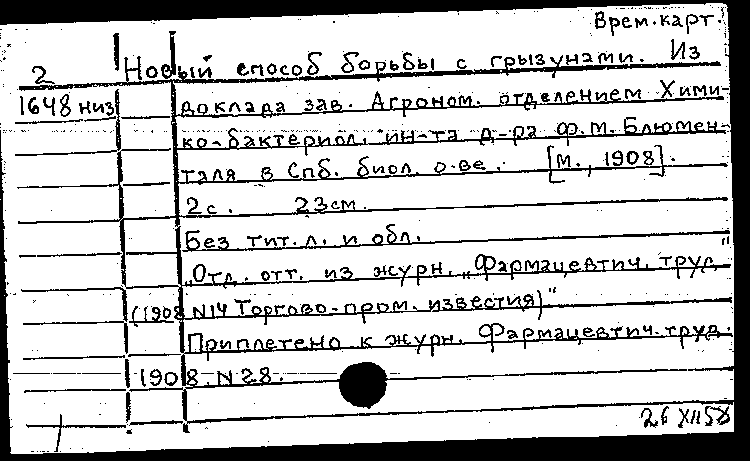 Врем.карт.
2 Новый способ борьбы с грызунами. Из
1648 низ доклада зав. Агроном. отделением Хими-
ко-бактериол. ин-та д-ра Ф.М. Блюмен-
таля в Спб. биол. о-ве. [М., 1908].
2с. 23см.
Без тит.л. и обл.
"Отд. отт. из журн. „Фармацевтич. труд"
(1908 N14 Торгово-пром. известия)"
Приплетено к журн. Фармацевтич. труд.
1908. N 28.
26 XII 58